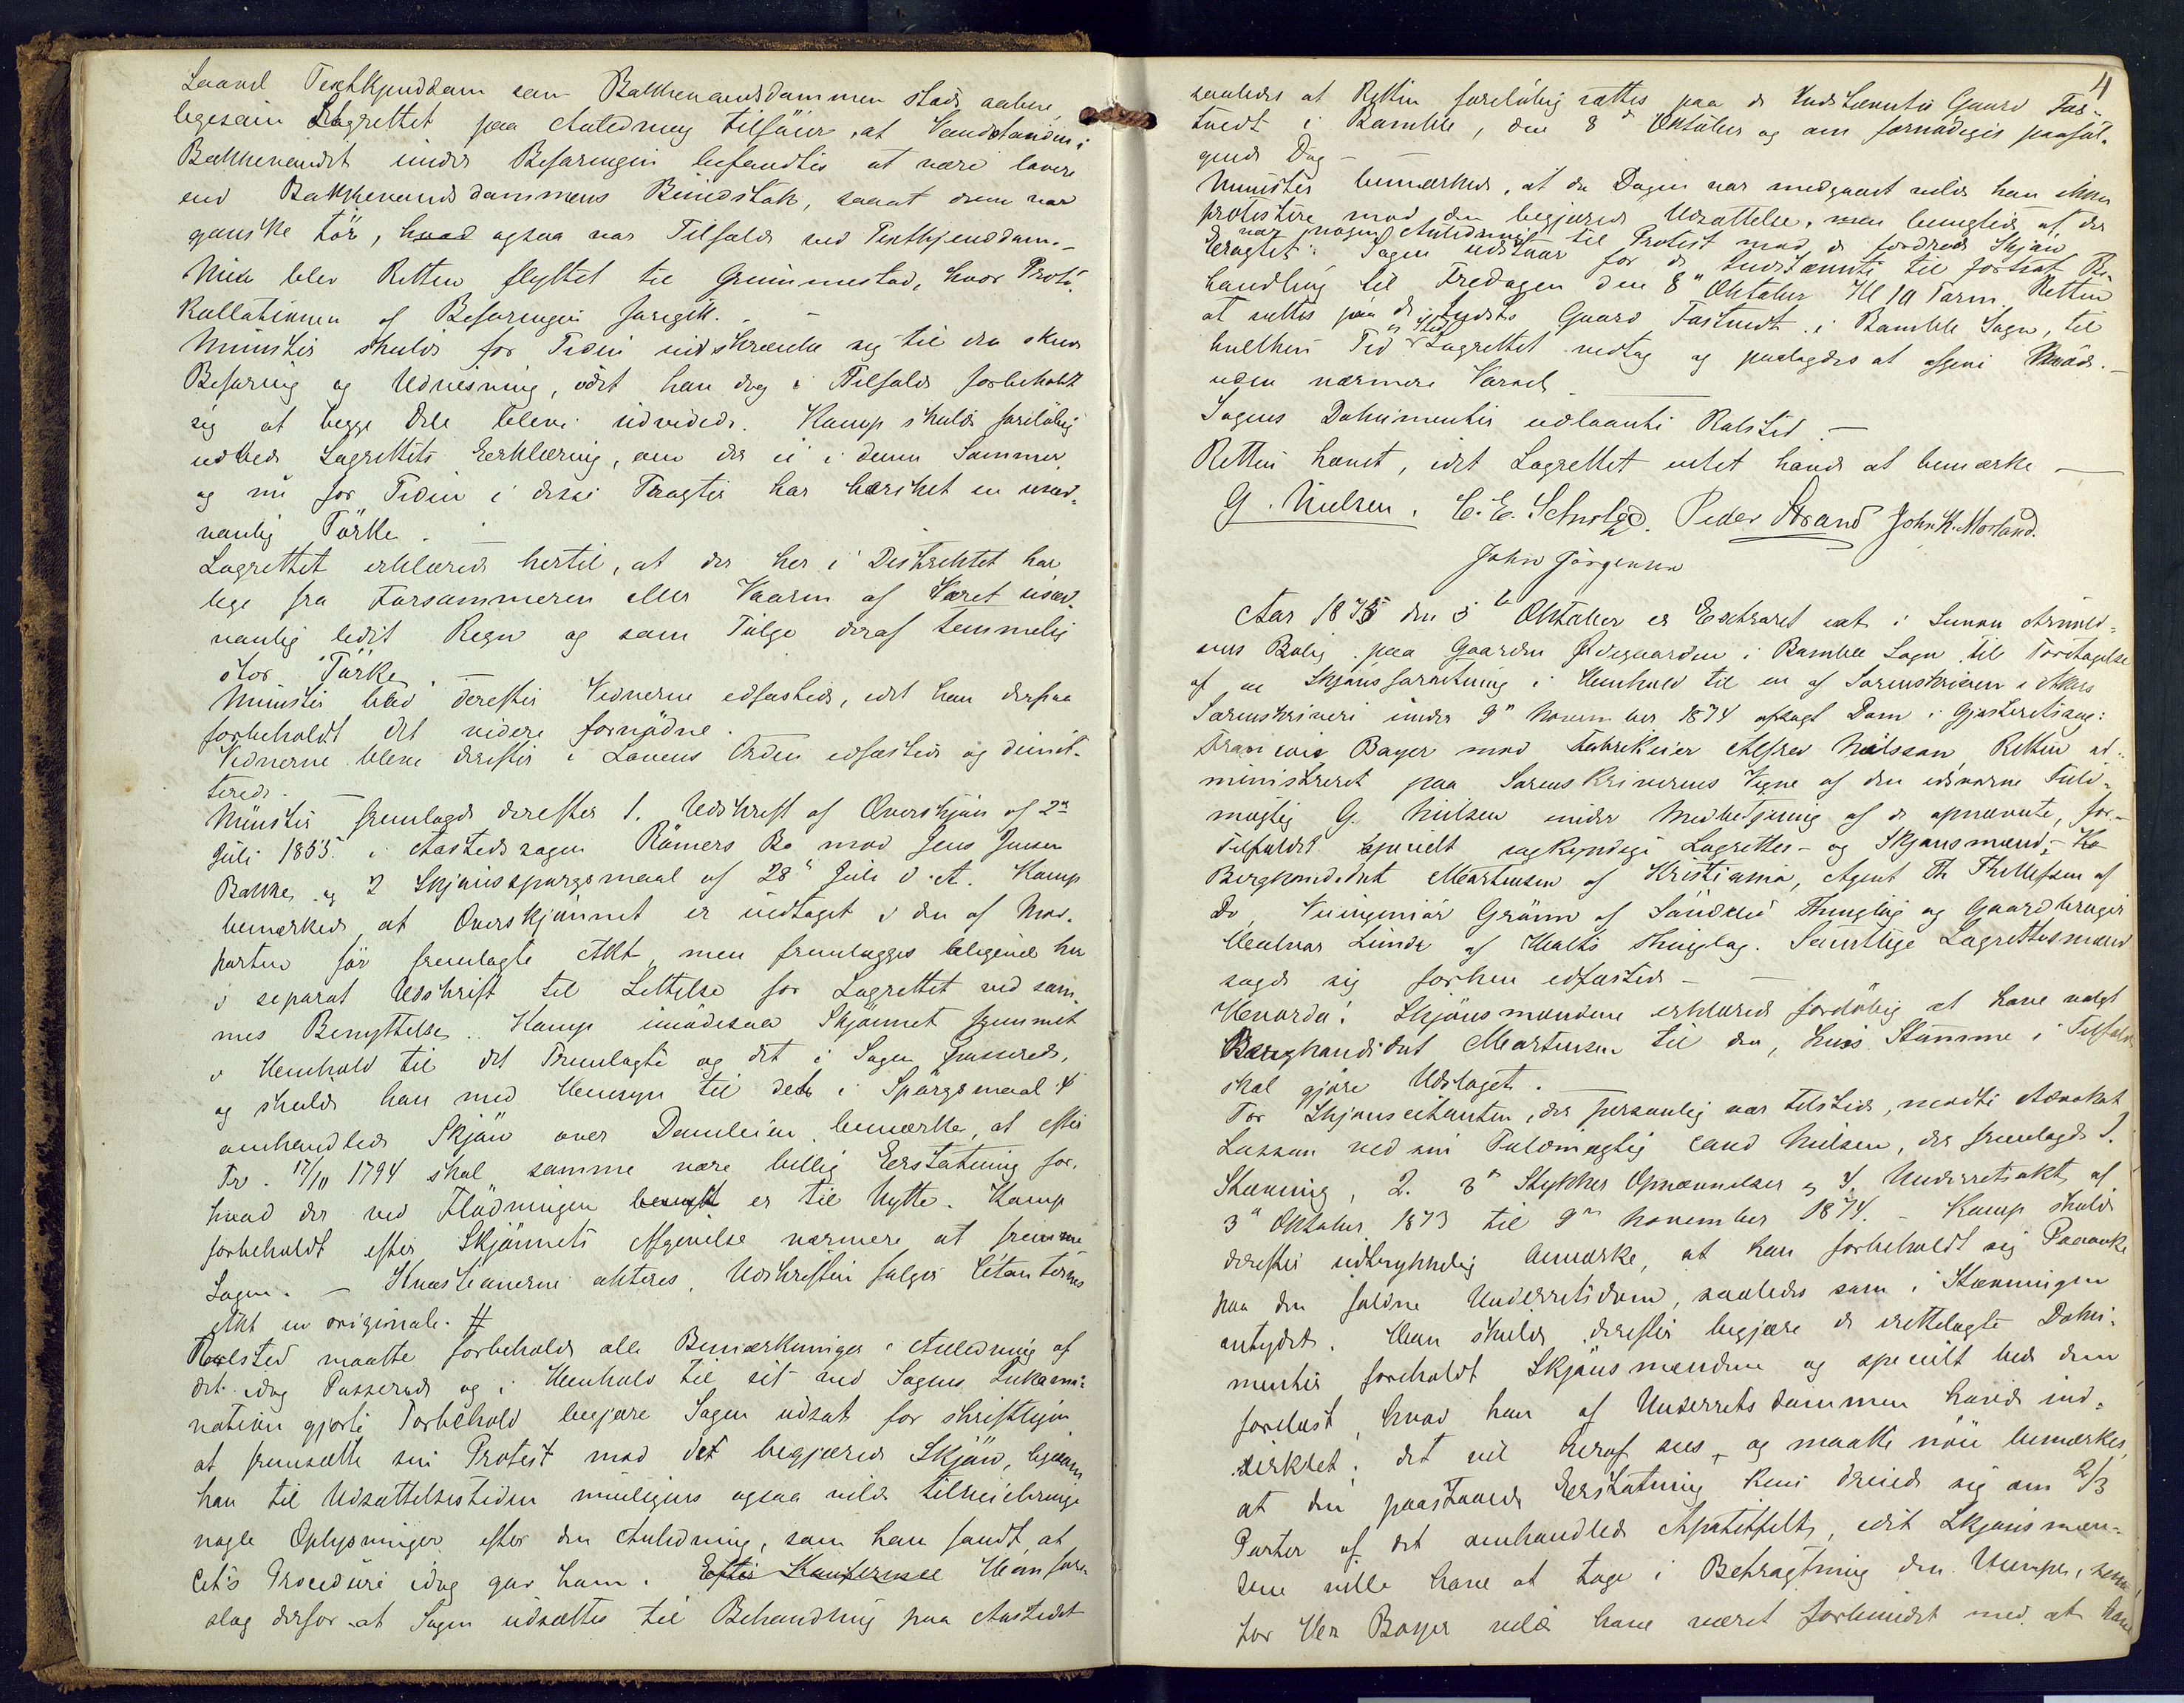 saavel Textkjenddam som Bakkevandsdammen stode aabne,
ligesom Lagrettet paa Anledning tilföier, at Vandstanden i
Bakkevandet under Befaringen befandtes at være lavere
end Bakkevandsdammens Bundstok, saaat den var
ganske tör, hvad ogsaa var Tilfælde ved
Man blev Retten flyttet til Grummestad, hvor Proto-
kollationen af Befaringen foregik. –
Münster skulde for Tiden indskrænke sig til den skede
Befaring og Udvisning, idet han dog i Tilfælde forbeholdt
sig at begge Dele bleve udvidede. Kamp skulde foreløbig
udbede Lagrettets Erklæring, om der ei i denne Sommer
og nu for Tiden i disse Tragter har hersket en usæd-
vanlig Törke. –
Lagrettet erklærede hertil, at der her i Distriktet har
lige fra Forsommeren eller Vaaren af været usæd-
vanlig lidet Regn og som Fölge deraf temmelig
stor Törke. –
Münster bad derefter Vidnerne edfæstede, idet han derpaa
forbeholdt det videre fornödne.
Vidnerne bleve derefter i Lovens Orden edfæstede og dimit-
terede. –
Münster fremlagde derefter 1. Udskrift af Overskjön af 2n
Juli 1855 i Aastedssagen Römers Bo mod Jens Jensen
Bakke og 2 Skjönsspørgsmaal af 28n Juli d. A. Kamp
bemærkede, at Overskjönnet er indtaget i den af Mod-
parten för fremlagte Akt, men fremlægges alligevel her
i separat Udskrift til Lettelse for Lagrettet ved sam-
mes Benyttelse. Kamp imödesaa Skjönnet fremmet
i Henhold til det Fremlagte og det i Sagen Passerede,
og skulde han med Hensyn til det i Spörgsmaal 4
omhandlede Skjön over Damleien bemærke, at efter
Fr. 17/10 1794 skal samme være billig Erstatning for,
hvad der ved Flödningen er til Nytte. Kamp
forbeholdt efter Skjönnets Afgivelse nærmere at fremme
Sagen. – akteres. Udskriften fölger Citantens
Akt in originale. #
Rolsted maatte forbeholde alle Bemærkninger i Anledning af
det idag Passerede og i Henhold til sit ved Sagens
nation gjorte Forbehold begjære Sagen udsat for skriftligen
at fremsætte sin Protest mod det begjærede Skjön, ligesom
han til Udsættelsestiden muligens ogsaa vilde tilveiebringe
nogle Oplysninger efter den Anledning, som han fandt, at
Cit's Procedure idag gav ham. Efter Konference Han fore-
slog derfor at Sagen udsættes til Behandling paa Aastedet
4
saaledes at Retten foreløbig sættes paa de Indstævnte Gaard Fos-
tvedt i Bamble, den 8de Oktober og om fornödiges paaföl-
gende Dag –
Münster bemærkede, at da Dagen var medgaaet vilde han ikke
protestere mod den begjærede Udsættelse, men benegtede at der
var nogen Anledning til Protest mod de fordrede Skjön
Eragtet: Sagen udstaar for de Indstævnte til fortsat Be-
handling til Fredagen den 8n Oktober Kl 10 Form. Retten
at sættes paa de Indsts Gaard Fostvedt i Bamble Sogn, til
hvilken Tid og Sted Lagrettet vedtog og paalagdes at afgive Möde.
uden nærmere Varsel
Sagens Dokumenter udlaante Rolsted. –
Retten hævet, idet Lagrettet intet havde at bemærke –
G. Nielsen. C. E. Scholtz. Peder Strand John K. Morland.
John Jörgensen
Aar 1875 den 5te Oktober er Extraret sat i Simon Arnved-
sens Bolig paa Gaarden Ødegaarden i Bamble Sogn til Foretagelse
af en Skjönsforretning i Henhold til en af Sorenskriveren i Akers
Sorenskriveri under 9n November 1874 afsagt Dom i Gjesteretssag:
Francois Bayer mod Fabrikeier Alfred Nilsson, Retten ad-
ministreret paa Sorenskriverens Vegne af den edsvorne Fuld-
mægtig G. Nielsen under Medbetjening af de opnævnte, for
Tilfældet specielt sagkyndige Lagrettes- og Skjönsmænd:
Bergkandidat Martensen af Kristiania, Agent Th Thellefsen af
do, Veiingeniör Grönn af Sannikedal Thinglag og Gaardbruger
Halvor Lunde af Holts Thinglag. Samtlige Lagrettesmænd
sagde sig forhen edfæstede –
Herorda! Skjönsmændene erklærede foreløbig at have valgt
Bergkandidat Martensen til den, hvis Stemme i Tilfælde
skal gjöre Udslaget. –
For Skjönscitanten, der personlig var tilstede, mödte Advokat
Lassen ved sin Fuldmægtig Cand Nielsen, der fremlagde 1.
Stævning, 2. 3n Stykker Opnævnelser og 4. Underretsakt, af
3n Oktober 1873 til 9n November 1874. – Kamp skulde
derefter udtrykkelig bemærke, at han forbeholdt sig Paaanke
paa den faldne Underretsdom, saaledes som i Stævningen
antydet. Han skulde derefter begjære de irettelagte Doku-
menter foreholdt Skjönsmændene og specielt bede dem
forelæst, hvad han af Underretsdommen havde ind-
cirklet; det vil heraf sees, og maatte nöie bemærkes,
at den paastaaede Erstatning kun dreiede sig om 2/3
Parter af det omhandlede Apatitfelt, idet Skjönsmæn-
dene ville have at tage i Betragtning den Ulempe, som
for Hr Bayer vilde have været forbundet med at have